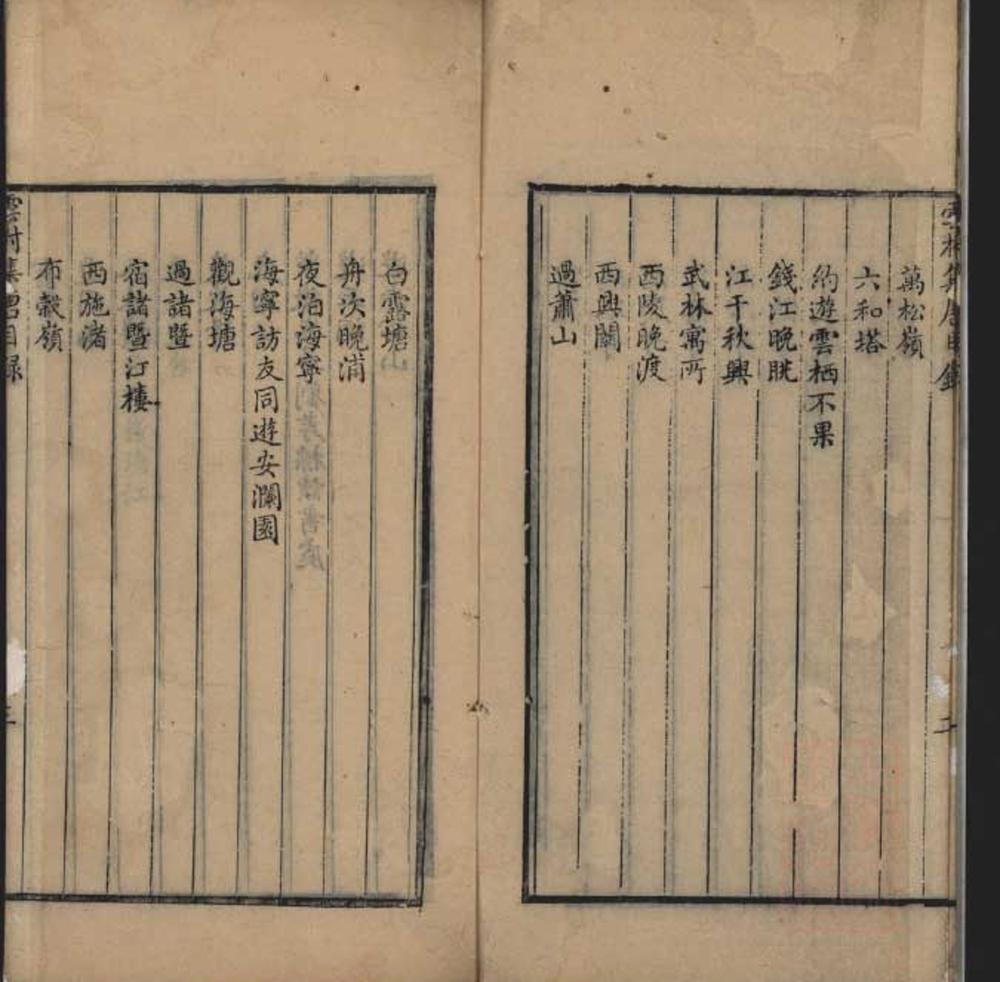 萬松嶺
六和塔
約遊雲栖不果
錢江晚眺
江干秋興
武林寓所
西陵晚渡
西興關
過蕭山
白露塘
舟次晚浦
夜泊海寧
海寧訪友同遊安瀾園
觀海塘
過諸暨
宿諸暨江樓
西施渚
布穀嶺